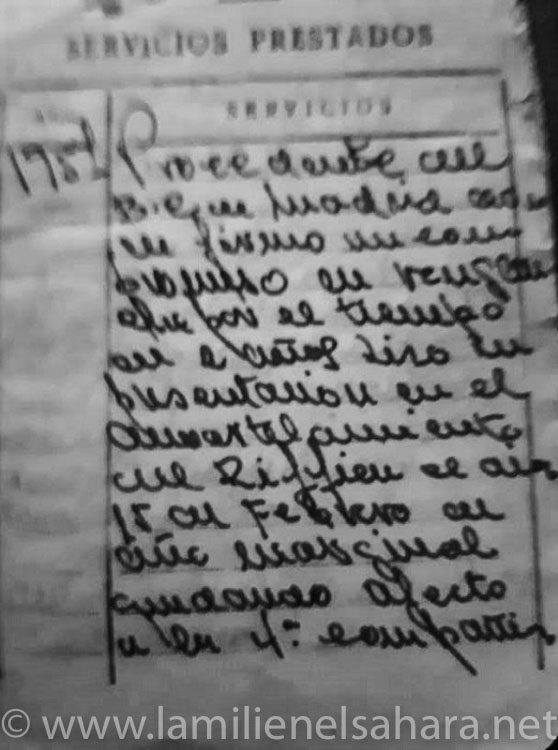 SERVICIOS PRESTADOS
SERVICIOS
1951 Procedente del
B. E. en Madrid
en firmo un com
promiso en
que por el tiempo
de 2 años hizo su
presentacion en el
acuartelamiento
del Riffien el dia
15 de Febrero del
año marginal
quedando afecto
a la 4ª compañia
© www.lamilienelsahara.net